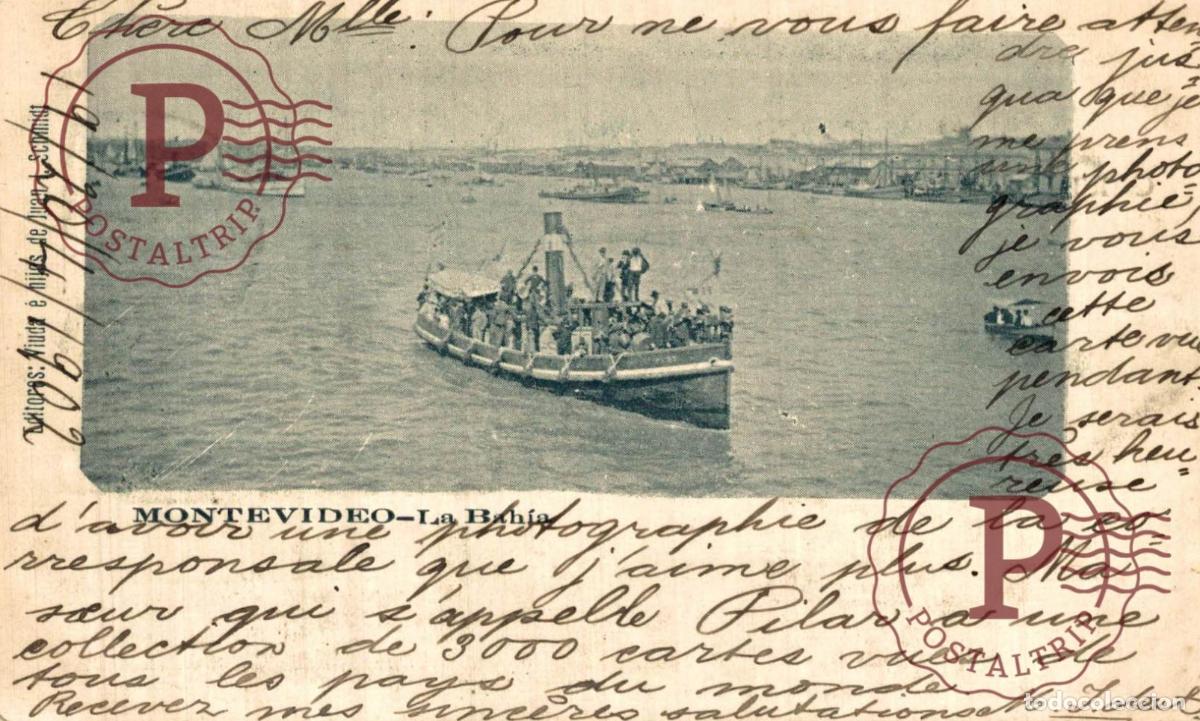 Chère Mlle. Pour ne vous faire atten
dre jus=
qua que je
me prens
une photo
graphie,
je vous
envois
cette
carte vue
pendant.
Je serais
très heu=
reuse
d'avoir une photographie de la co
rresponsale que j'aime plus. Ma
sœur qui s'appelle Pilar a une
collection de 3000 cartes vues de
tous les pays du monde
Recever mes sincères salutations
MONTEVIDEO-La Bahía
Editores: Viuda é hijos de Juan J. Schmidt
POSTALTRIP
POSTALTRIP
todocoleccion